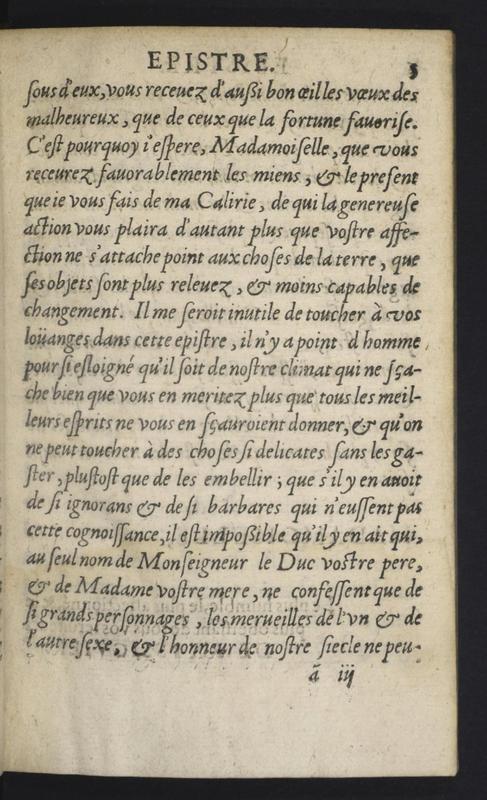 EPISTRE. 5
ſous d'eux, vous receuez d'außi bon œil les vœux des
malheureux, que de ceux que la fortune fauorise.
C'est pourquoy i'eſpere, Madamoiſelle, que vous
receurez fauorablement les miens, & le preſent
que ie vous fais de ma Calirie, de qui la genereuſe
action vous plaira d'autant plus que voſtre affe-
ction ne s'attache point aux choſes de la terre, que
ſes objets ſont plus releuez, & moins capables de
changement. Il me ſeroit inutile de toucher à vos
loüanges dans cette epiſtre, il n'y a point d'homme
pour ſi eſloigné qu'il ſoit de noſtre climat qui ne ſça-
che bien que vous en meritez plus que tous les meil-
leurs eſprits ne vous en ſçauroient donner, & qu'on
ne peut toucher à des choſes ſi delicates ſans les ga-
ſter, pluſtoſt que de les embellir ; que s'il y en auoit
de ſi ignorans & de ſi barbares qui n'euſſent pas
cette cognoiſſance, il eſt impoßible qu'il y en ait qui,
au ſeul nom de Monſeigneur le Duc voſtre pere,
& de Madame voſtre mere, ne confeſſent que de
ſi grands perſonnages, les merueilles de l'vn & de
l'autre ſexe, & l'honneur de noſtre ſiecle ne peu-
ã iij